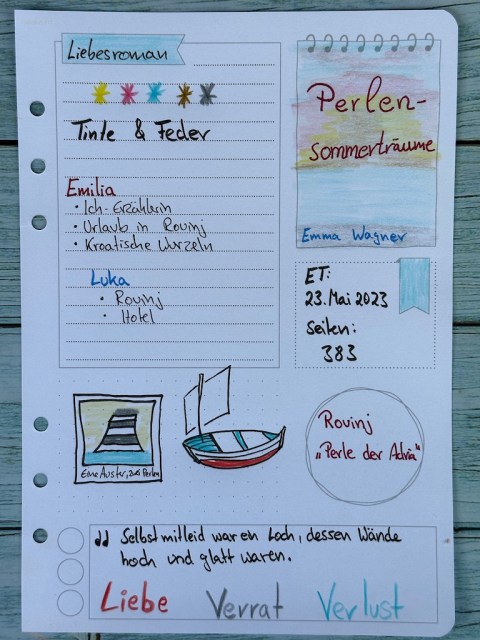 Liebesroman
Tinte & Feder
Emilia
• Ich-Erzählerin
• Urlaub in Rovinj
• Kroatische Wurzeln
Luka
• Rovinj
• Hotel
Perlen-
sommerträume
Emma Wagner
ET:
23. Mai 2023
Seiten:
383
Eine Auster, zwei Perlen
Rovinj
„Perle der Adria"
" Selbstmitleid war ein Loch, dessen Wände
hoch und glatt waren.
Liebe Verrat Verlust